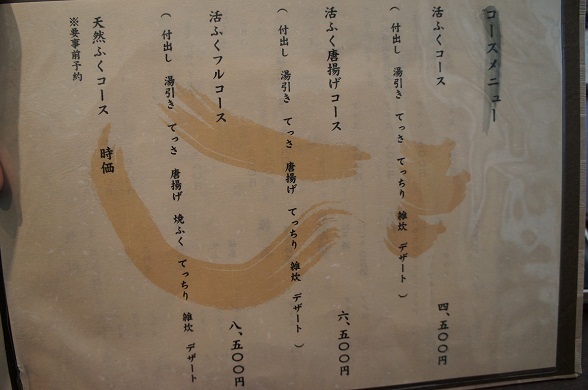 コースメニュー
活ふくコース 四、五〇〇円
（ 付出し 湯引き てっさ てっちり 雑炊 デザート ）
活ふく唐揚げコース 六、五〇〇円
（ 付出し 湯引き てっさ 唐揚げ てっちり 雑炊 デザート ）
活ふくフルコース 八、五〇〇円
（ 付出し 湯引き てっさ 唐揚げ 焼ふく てっちり 雑炊 デザート
天然ふくコース 時価
※要事前予約